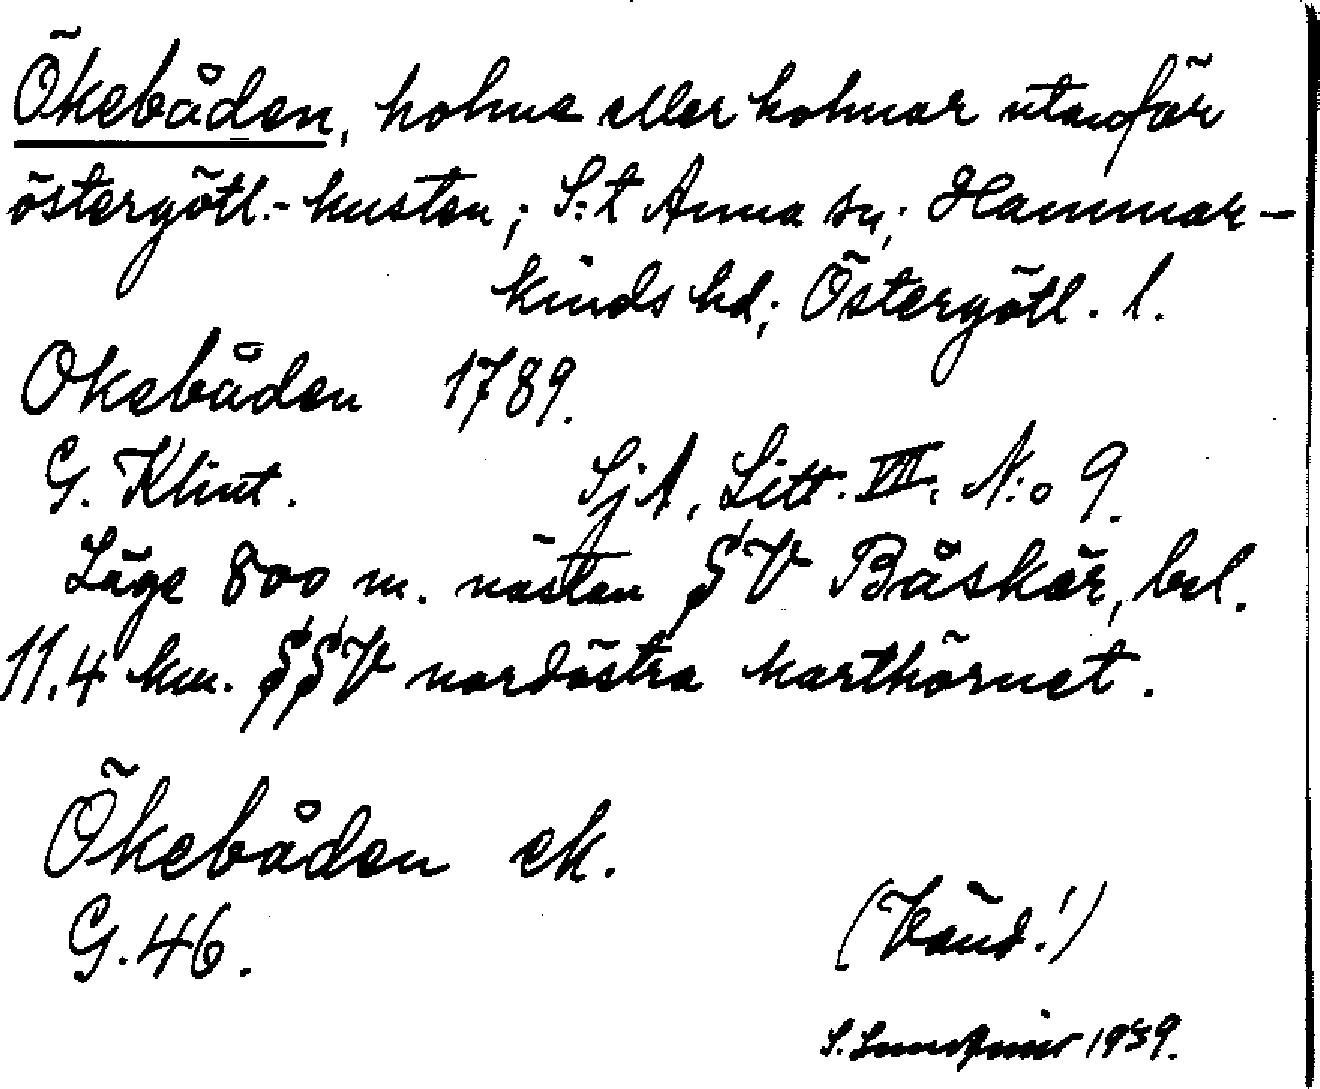 Ökebåden, holme eller holmar utanför
östergötl.-kusten; S:t Anna sn; Hammar-
kinds hd; Östergötl. l.
Okebåden 1789.
G. Klint. SjA, Litt. VII. N:o 9.
Läge 800 m. nästan SV Båskär, bel.
11.4 km. SSV nordöstra karthörnet.
Ökebåden ek.
G. 46.
(Vänd!)
S. 1939.